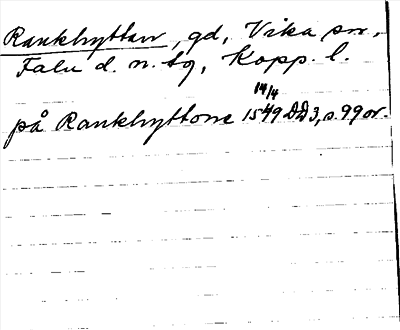 Rankhyttan, gd, Vika sn,
Falu d. n. tg, Kopp. l.
på Rankhyttone 14/4 1549 DD 3, s. 99 or.